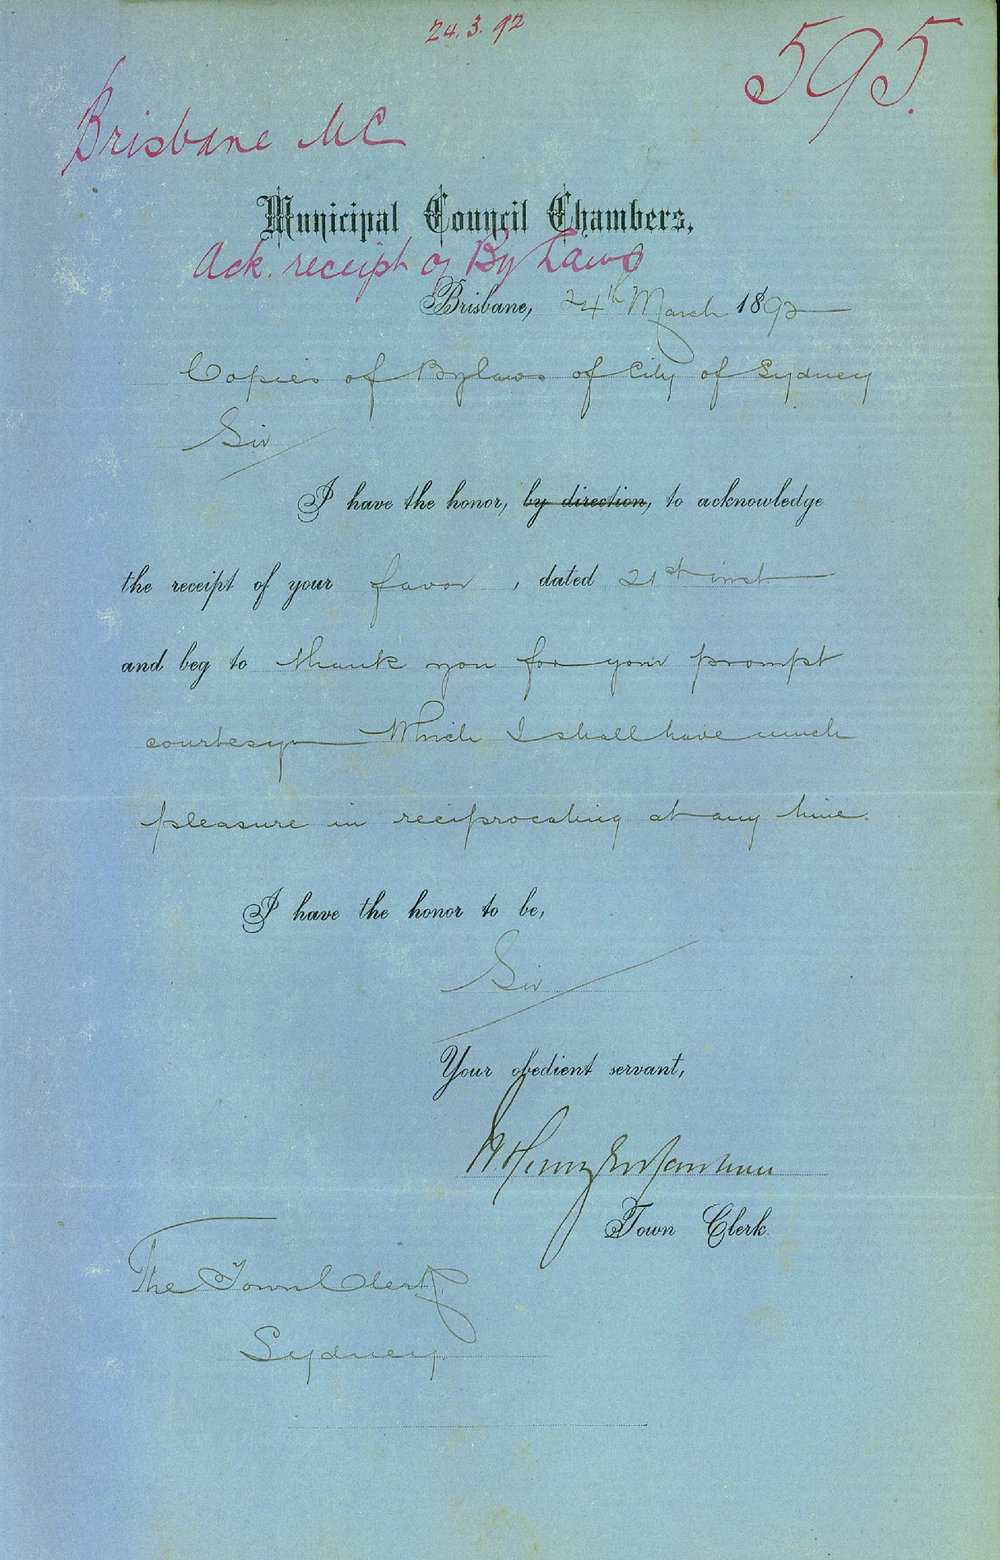 24.3.92
595.
Brisbane MC
Municipal Council Chambers,
Ack. receipt of By Laws
Brisbane, 24th March 1892
Copies of Bylaws of City of Sydney
Sir
I have the honor, by direction, to acknowledge
the receipt of your favor, dated 21st inst
and beg to thank you for your prompt
courtesy which I shall have much
pleasure in reciprocating at any time.
I have the honor to be,
Sir
Your obedient servant,
Town Clerk
The Town Clerk
Sydney